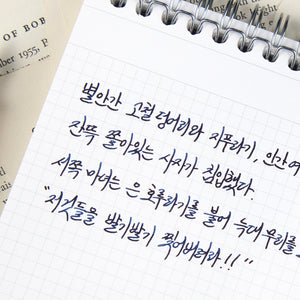 OF BOB
ember 1955, p
별안간 고철덩어리와 지푸라기, 인간 여
잔뜩 쫄아있는 사자가 침입했다.
서쪽 마녀는 은 호루라기를 불어 늑대 무리를
"저것들을 발기발기 찢어버려라!!"